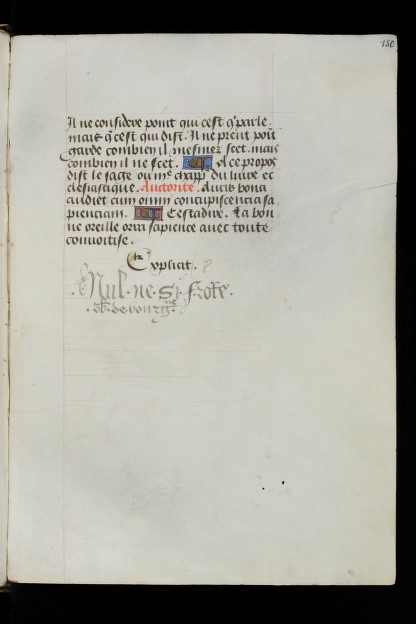 150
Il ne considere point qui cest q' parle.
mais q' cest qui dist. Il ne prent poīt
garde combien il mesmez scet. mais
combien il ne scet. A ce propos
dist le sage ou mᵉ chapp̄ du livre ec
clesiastique. Auctorite. Auris bona
audiet cum omni concupiscencia sa
pienciam. Cestadire. La bon
ne oreille orra sapience avec toute
convoitise.
Explicit.
Nul. ne. sy. f.
de bourgⁿᵉ